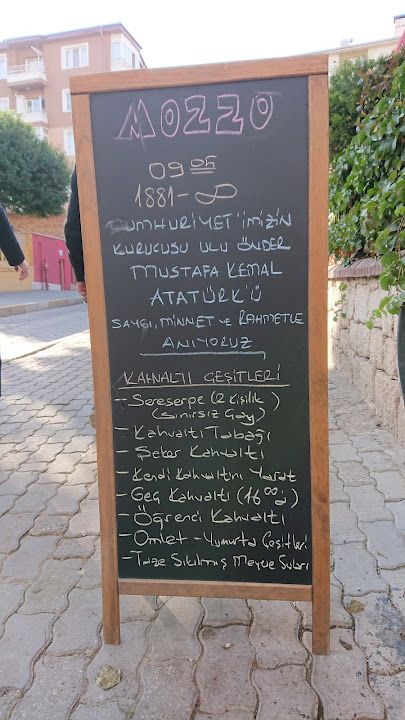 MOZZO
09 05
1881-∞
CUMHURİYET'İMİZİN
KURUCUSU ULU ÖNDER
MUSTAFA KEMAL
ATATÜRK'Ü
SAYGI, MİNNET ve RAHMETLE
ANIYORUZ
KAHVALTI ÇEŞİTLERİ
- Sereserpe (2 Kişilik)
(Sınırsız Çay)
- Kahvaltı Tabağı
- Şeker Kahvaltı
- Kendi Kahvaltını Yarat
- Geç Kahvaltı (16:00'a)
- Öğrenci Kahvaltı
- Omlet - Yumurta Çeşitleri
- Taze Sıkılmış Meyve Suları